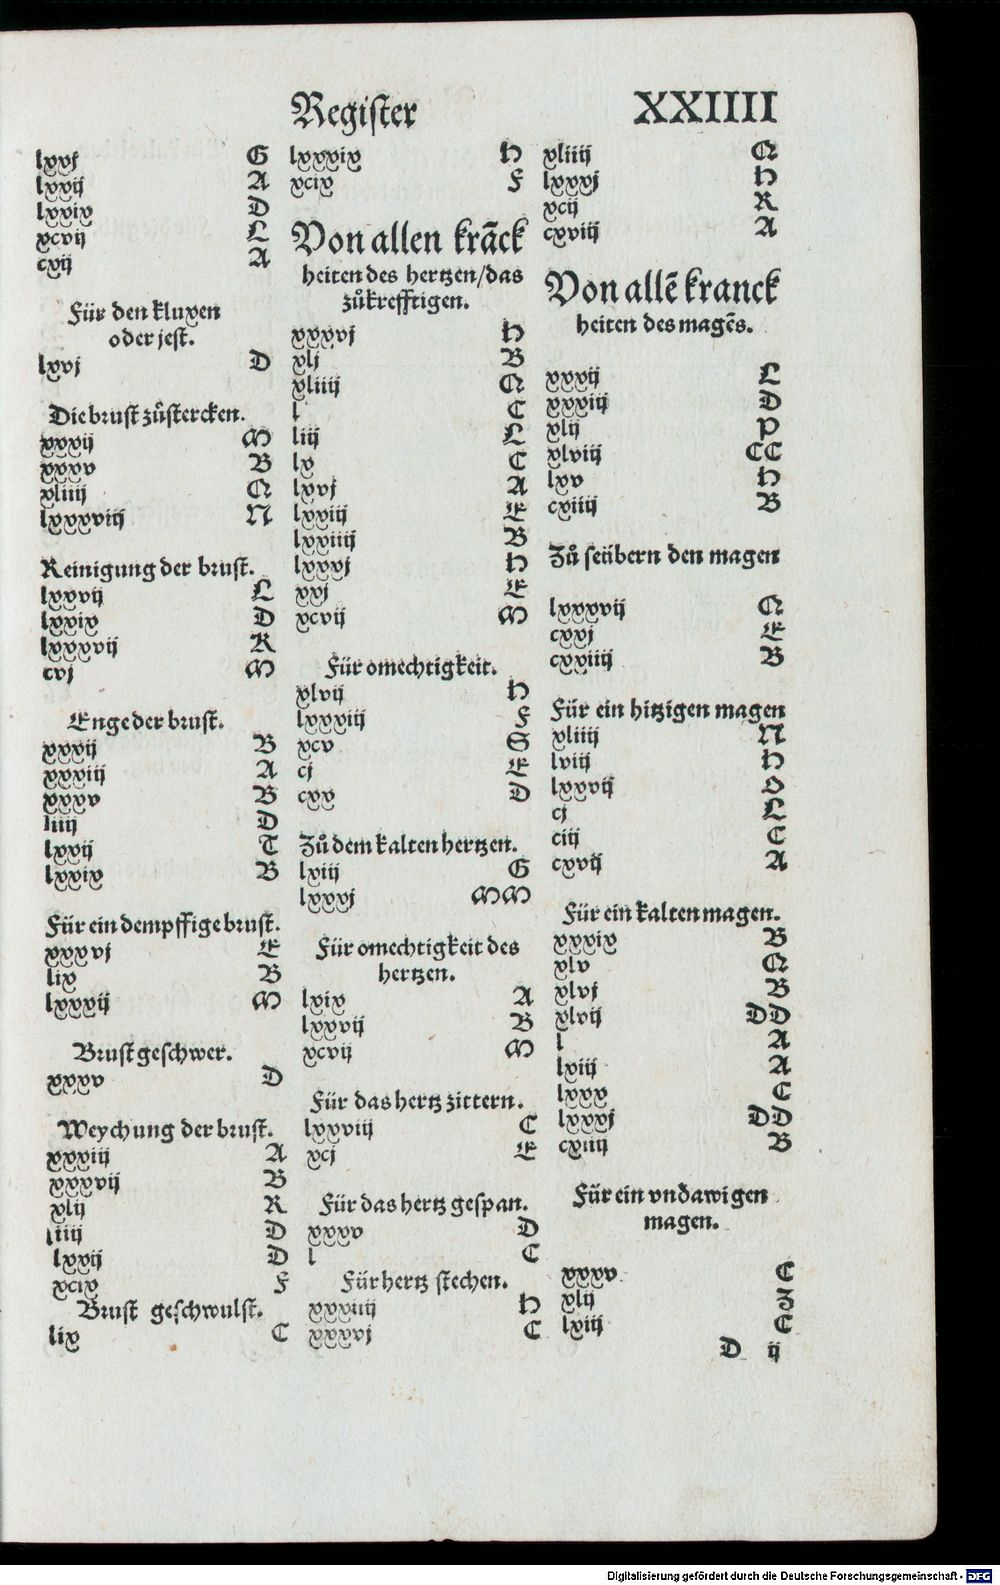 Register XXIIII
lxxj G
lxxij A
lxxix D
xcvij L
cxij A
Für den kluxen
oder jest.
lxvj D
Die brust zůstercken.
xxxij M
xxxv B
xliiij Q
lxxxviij N
Reinigung der brust.
lxxvij L
lxxix D
lxxxvij K
cvj M
Enge der brust.
xxxij B
xxxiij A
xxxv B
liiij D
lxxij T
lxxix B
Für ein dempffige brust.
xxxvj E
lix B
lxxxij M
Brust geschwer.
xxxv D
Weychung der brust.
xxxiij A
xxxvij B
xlij R
liiij D
lxxij D
xcix F
Brust geschwulst.
lix C
lxxxix H
xcix F
Von allen krãck
heiten des hertzen/das
zůkrefftigen.
xxxvj H
xlj B
xliiij Q
l C
liij L
lx C
lxvj A
lxxiij E
lxxiiij B
lxxxj H
xxj E
xcvij M
Für omechtigkeit.
xlvij H
lxxxiij F
xcv G
cj E
cxx D
Zů dem kalten hertzen.
lxiij G
lxxxj MM
Für omechtigkeit des
hertzen.
lxix A
lxxvij B
xcvij M
Für das hertz zittern.
lxxviij C
xcj E
Für das hertz gespan.
xxxv D
l C
Für hertz stechen.
xxxiiij H
xxxvj C
xliiij Q
lxxxj H
xcij R
cxviij A
Von allẽ kranck
heiten des magẽs.
xxxij L
xxxiij D
xlij P
xlviij CC
lxv H
cxiiij B
Zů seübern den magen
lxxxvij Q
cxxj E
cxxiiij B
Für ein hitzigen magen
xliiij N
lviij H
lxxvij O
cj L
ciij C
cxvij A
Für ein kalten magen.
xxxix B
xlv Q
xlvj B
xlvij DD
l A
lxiij A
lxxx C
lxxxj DD
cxiiij B
Für ein vndawigen
magen.
xxxv C
xlij Z
lxiij C
D ij
Digitalisierung gefördert durch die Deutsche Forschungsgemeinschaft - DFG